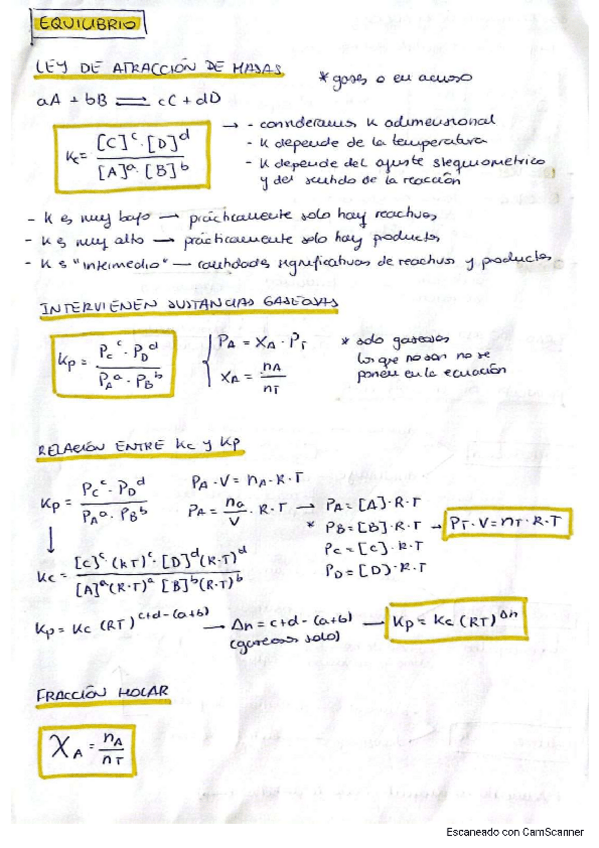 EQUILIBRIO
LEY DE ATRACCIÓN DE MASAS
* gases o en acuoso
aA + bB ⇌ cC + dD
Kc = [C]^c · [D]^d / [A]^a · [B]^b
→ - consideramos K adimensional
- K depende de la temperatura
- K depende del ajuste stequiometrico
y del sentido de la reacción
- K es muy bajo → prácticamente solo hay reactivos
- K es muy alto → prácticamente solo hay productos
- K es "intermedio" → cantidades significativas de reactivos y productos
INTERVIENEN SUSTANCIAS GASEOSAS
Kp = Pc^c · PD^d / PA^a · PB^b
PA = XA · PT
XA = nA / nT
* solo gaseosas
los que no son no se
ponen en la ecuación
RELACIÓN ENTRE Kc y Kp
Kp = Pc^c · PD^d / PA^a · PB^b
↓
PA · V = nA · R · T
PA = na / V · R · T → PA = [A] · R · T
* PB = [B] · R · T → PT · V = nT · R · T
Pc = [C] · R · T
PD = [D] · R · T
Kc = [C]^c · (RT)^c · [D]^d (R·T)^d / [A]^a (R·T)^a [B]^b (R·T)^b
Kp = Kc (RT)^c+d-(a+b) → Δn = c+d-(a+b) → Kp = Kc (RT)^Δn
(gaseosos solo)
FRACCIÓN MOLAR
XA = nA / nT
Escaneado con CamScanner